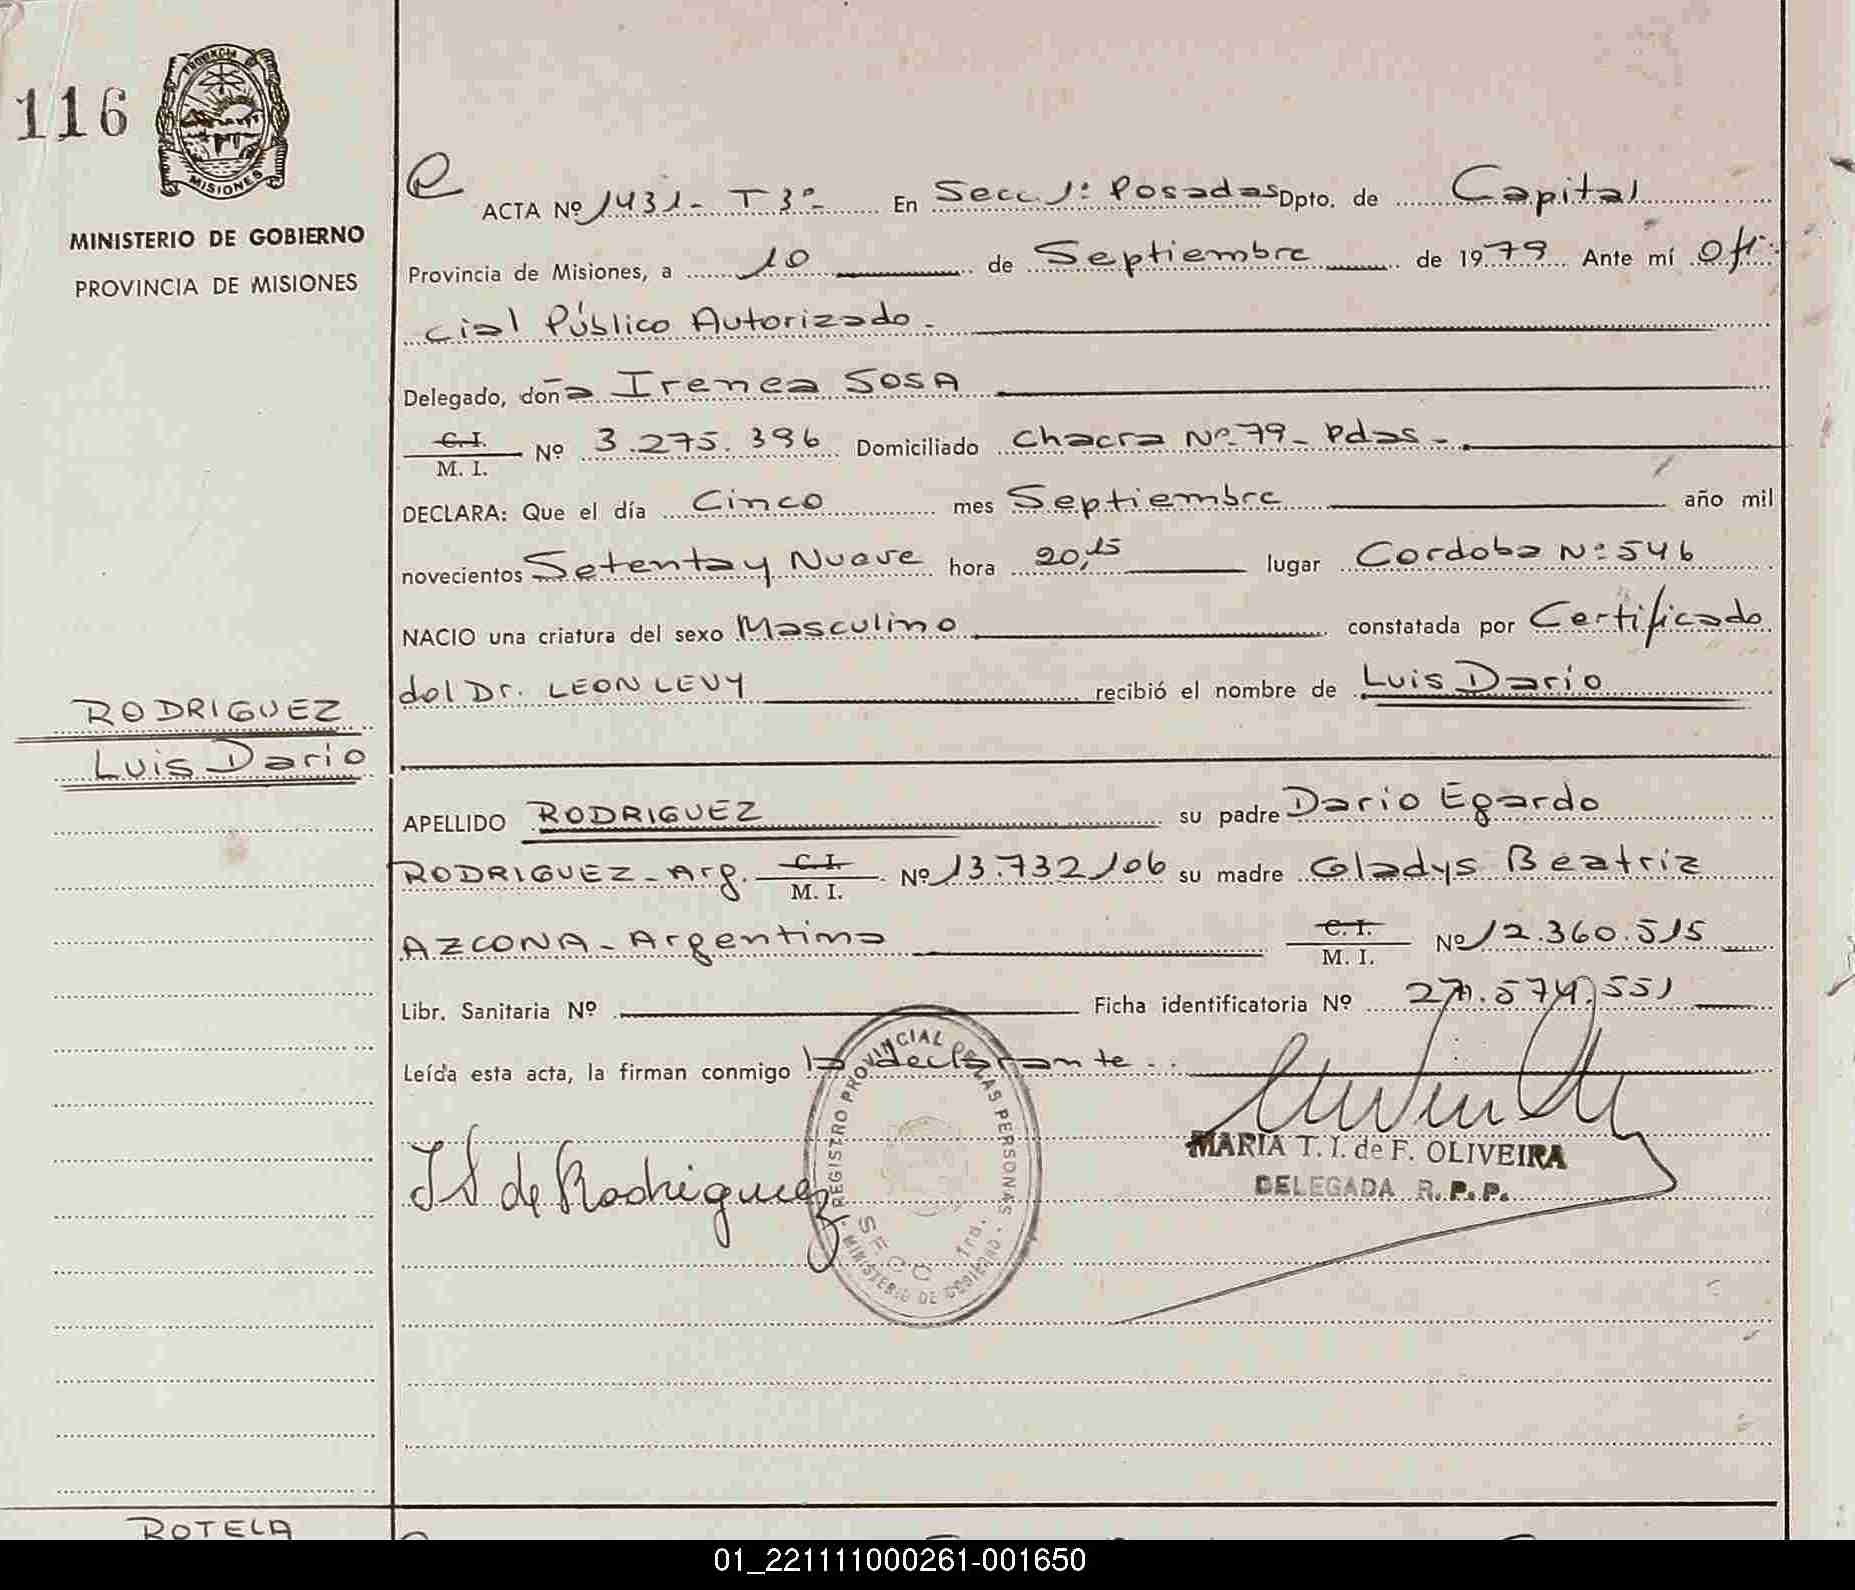 116
PROVINCIA D
MISIONES
MINISTERIO DE GOBIERNO
PROVINCIA DE MISIONES
RODRIGUEZ
Luis Dario
ACTA Nº 1431- T 3º- En Secc. 1: Posadas Dpto. de Capital
Provincia de Misiones, a 10 de Septiembre de 1979 Ante mí Ofi-
cial Público Autorizado.
Delegado, doña Irenea SOSA
C. I.
M. I. Nº 3.275.396 Domiciliado Chacra Nº 79- Pdas-.
DECLARA: Que el día Cinco mes Septiembre año mil
novecientos Setenta y Nueve hora 20,15 lugar Cordoba Nº 546
NACIO una criatura del sexo Masculino constatada por Certificado
del Dr. LEON LEVY recibió el nombre de Luis Dario
APELLIDO RODRIGUEZ su padre Dario Egardo
RODRIGUEZ-Arg. C. I.
M. I. Nº 13.732,106 su madre Gladys Beatriz
AZCONA-Argentina C. I.
M. I. Nº 12.360.515
Libr. Sanitaria Nº Ficha identificatoria Nº 27.574.551
Leída esta acta, la firman conmigo la declarante..
J S de Rodriguez
REGISTRO PROVINCIAL DE LAS PERSONAS
SECC 1ra.
MINISTERIO DE GOBIERNO
MARIA T. I. de F. OLIVEIRA
DELEGADA R. P. P.
ROTELA
01_221111000261-001650